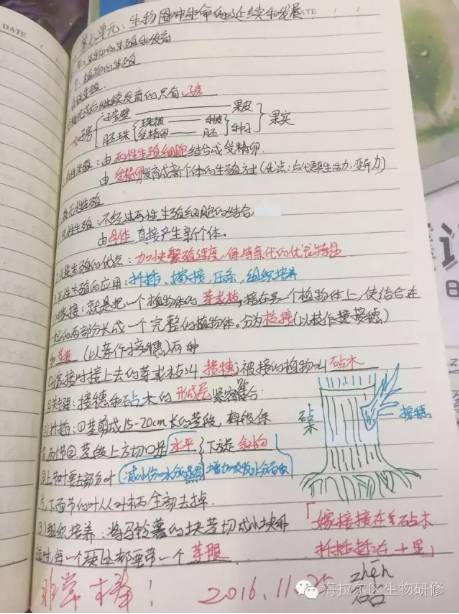 DATE
第七单元:生物圈中生命的延续和发展
DATE
一、植物的生殖
继续发育的只有子房
子房
子房壁 —— 果皮
胚珠
珠被 —— 种皮
受精卵 —— 胚
种子
果实
有性生殖:由两性生殖细胞结合成受精卵
由受精卵发育成新个体的生殖方式(优点:后代具生活力、变异力)
无性生殖
不经过两性生殖细胞的结合
由母体直接产生新个体。
无性生殖的优点:加快繁殖速度,保持亲代的优良特性
无性生殖的应用:扦插、嫁接、压条、组织培养
嫁接:就是把一个植物体的芽或枝,接在另一个植物体上,使结合在
一起的两部分长成一个完整的植物体,分为枝接(以枝作接穗)
和芽接(以芽作接穗)两种
嫁接时接上去的芽或枝叫接穗,被接的植物叫砧木
关键:接穗和砧木的形成层紧密结合
扦插:①茎剪成15-20cm长的茎段,每段保
②茎段上方切口是水平
下方是斜向
③上部叶去部分叶
减小水分的散失
增加吸收水分面积
下面节的叶从叶柄处全部去掉
组织培养:将马铃薯的块茎切成小块
每一个块都要带一个芽眼
砧木
接穗
「嫁接接在砧木
扦插插在土里」
zhēn
砧
非常棒!
2016.11.25
海拉尔区生物研修